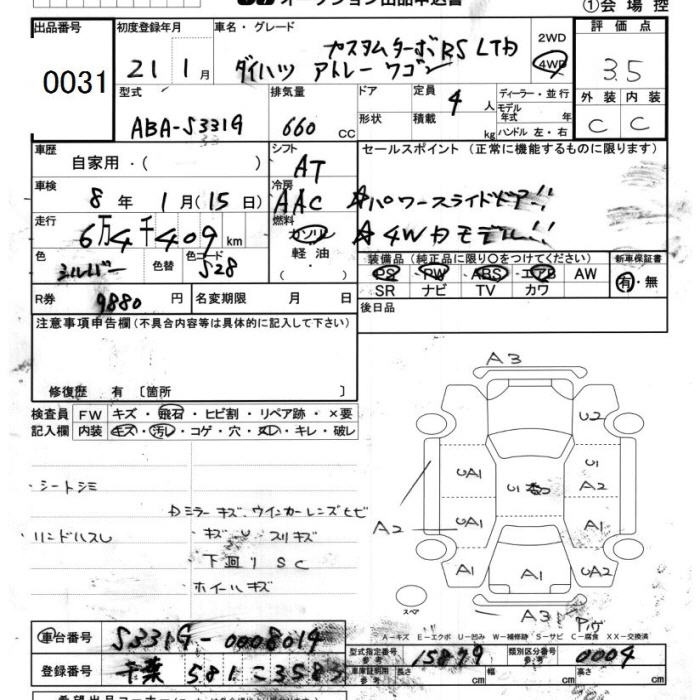 オークション出品申込書
①会場控
出品番号
0031
初度登録年月
21 1月
車名・グレード
カスタムターボRS LTD
ダイハツ アトレーワゴン
2WD
4WD
評価点
3.5
型式
ABA-S331G
排気量
660 CC
ドア
形状
定員
4人
積載
kg
ディーラー・並行
モデル年式 年
ハンドル 左・右
外装 内装
C C
車歴
自家用・( )
シフト
AT
セールスポイント (正常に機能するものに限ります)
車検
8年 1月(15日)
冷房
AAC
☆パワースライドドア!!
走行
6万4千409km
燃料
ガソリン
軽油
・( )
☆4WDモデル!!
色
シルバー
色替
色コード
S28
装備品(純正品に限り○をつけてください)
PS PW ABS エアB AW
SR ナビ TV カワ
新車保証書
有・無
R券
9880円
名変期限 月 日
後日品
注意事項申告欄(不具合内容等は具体的に記入して下さい)
修復歴 有 〔箇所 〕
検査員記入欄
FW キズ・飛石・ヒビ割・リペア跡・×要
内装 キズ・汚レ・コゲ・穴・ヌレ・キレ・破レ
シートシミ
Dミラーキズ、ウインカーレンズヒビ
キズ U スリキズ
下廻りSC
ホイールキズ
A3
U2
UA1
U
A2
A2
UA1
A1
A1
A1
UA2
A3
スペア
A-キズ E-エクボ U-凹み W-補修跡 S-サビ C-腐食 XX-交換済
車台番号
S331G-0008019
登録番号
千葉 581 こ 3583
型式指定番号
参考
15879
類別区分番号
参考
0004
車庫証明用
参考
長さ
幅
高さ